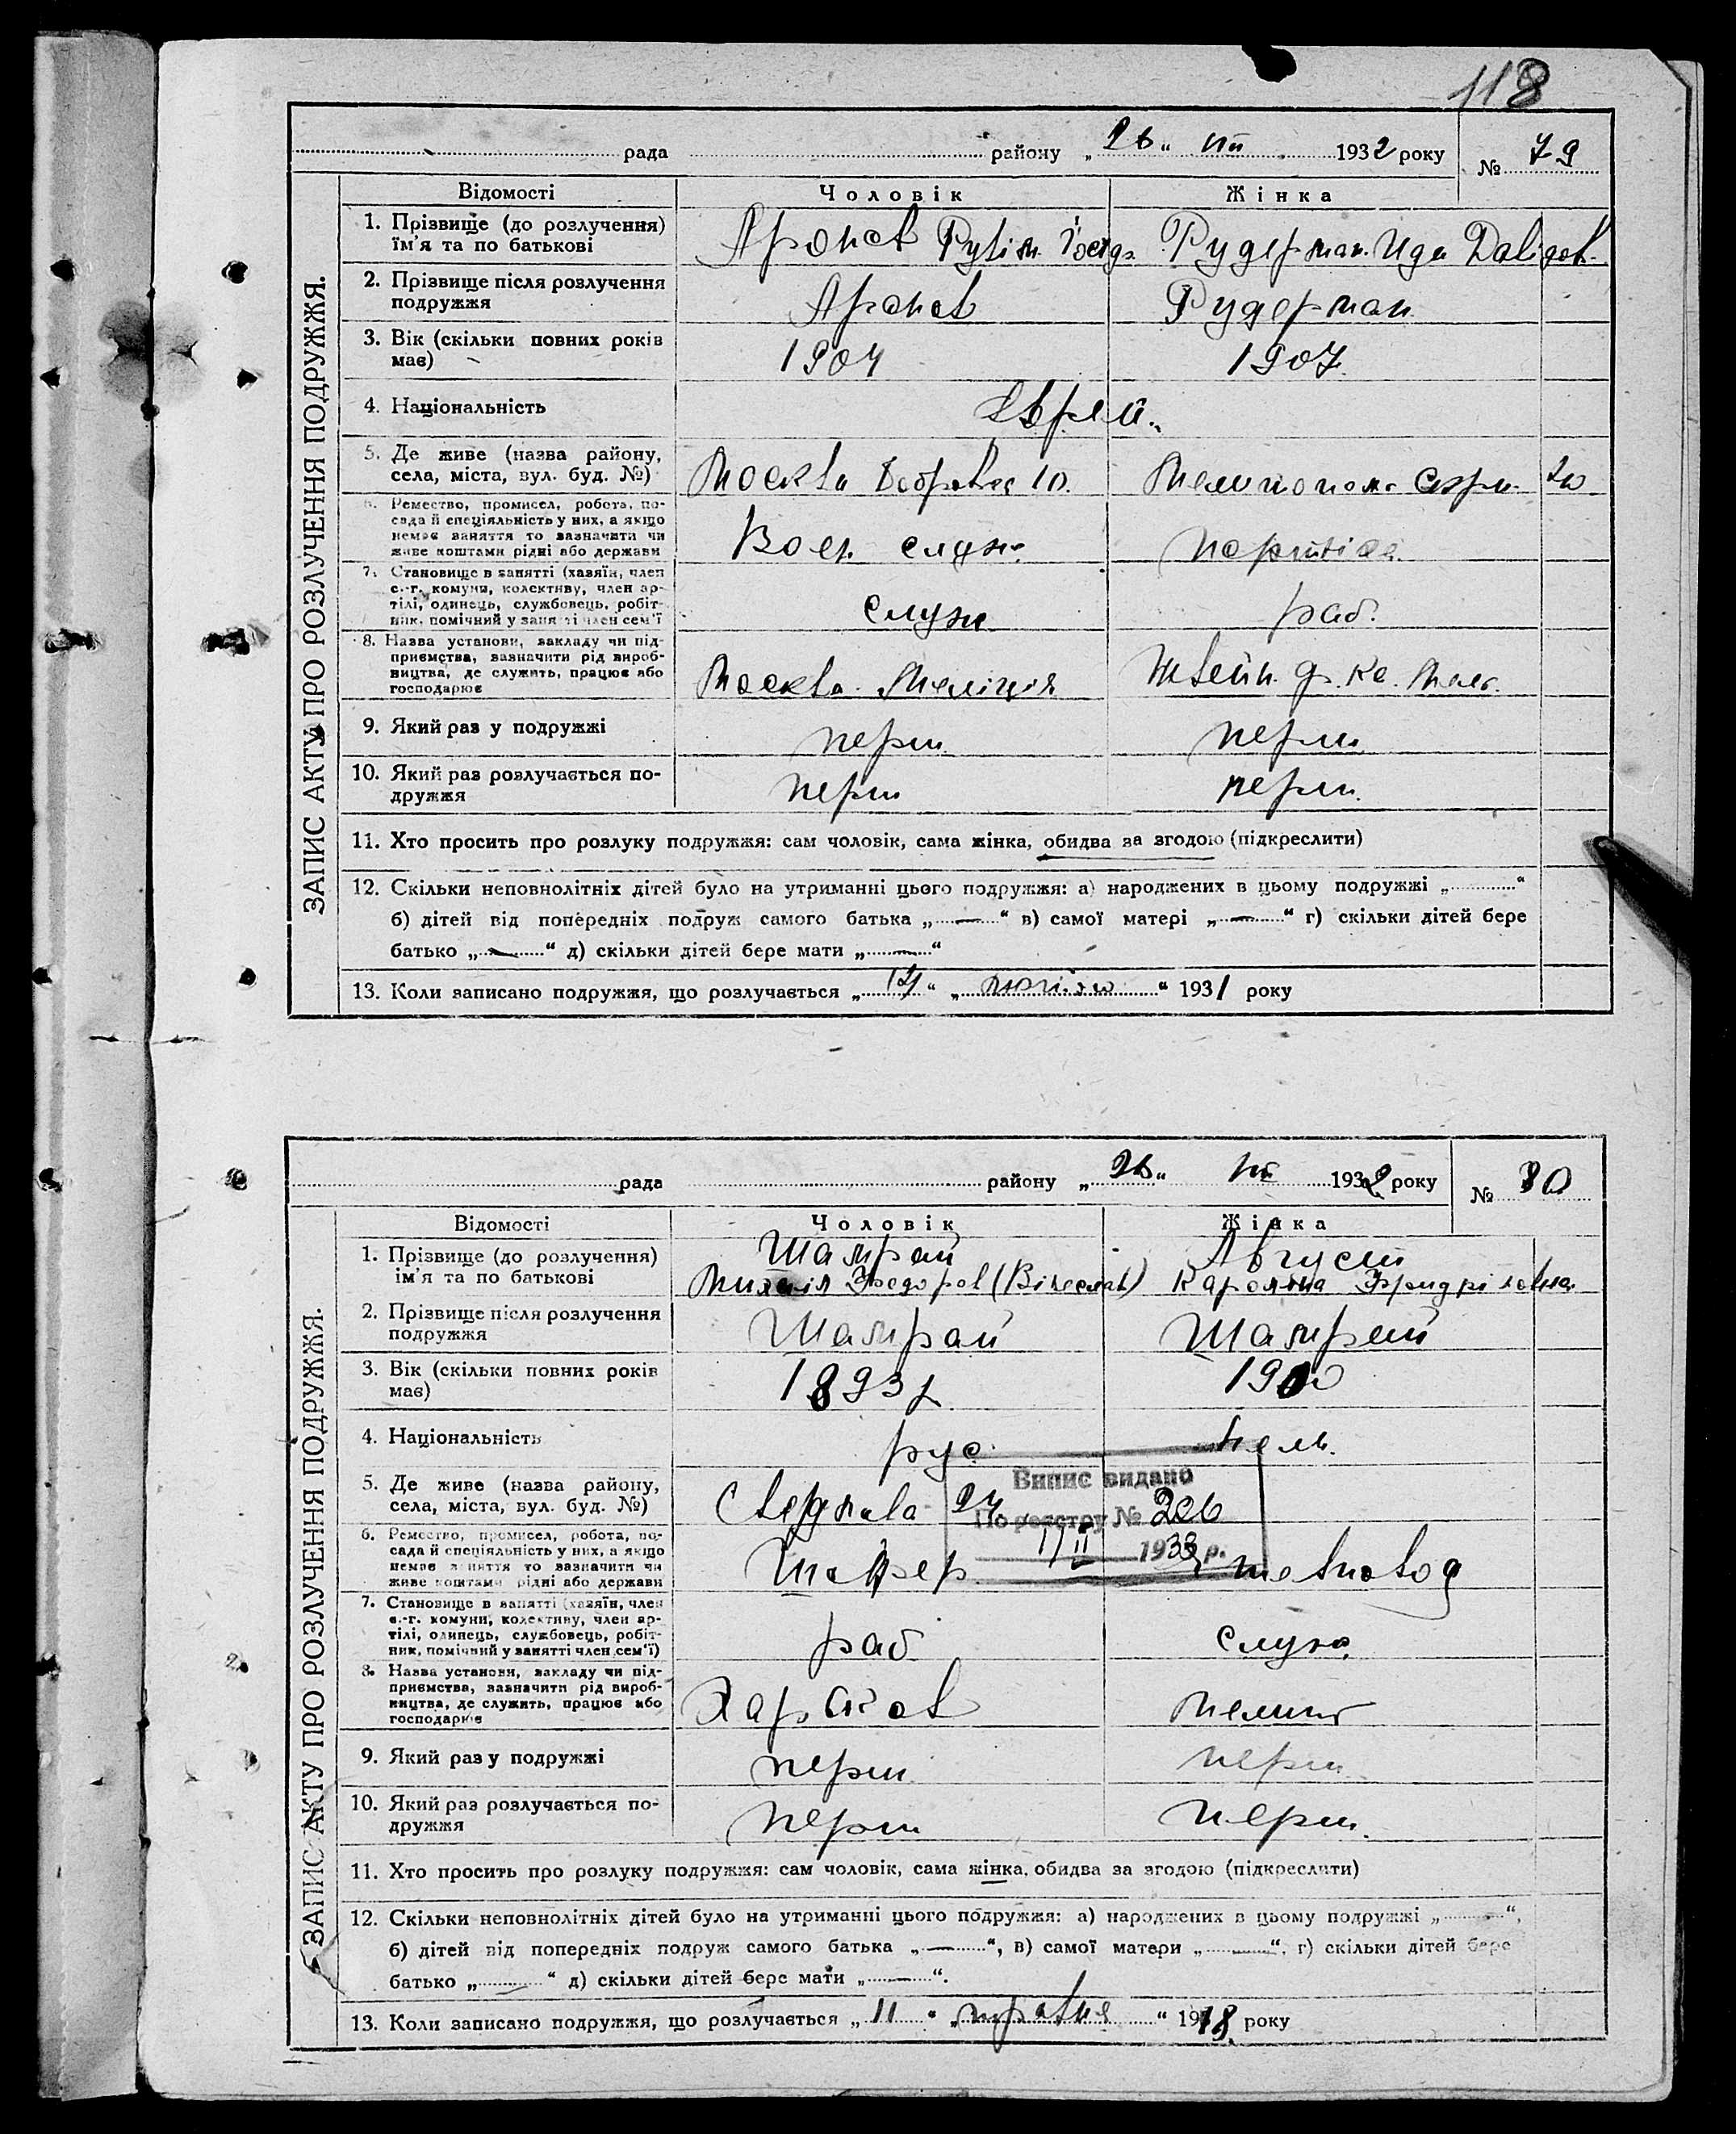 118
рада району „26“ VII 1932 року № 79
ЗАПИС АКТУ ПРО РОЗЛУЧЕННЯ ПОДРУЖЖЯ.
Відомості Чоловік Жінка
1. Прізвище (до розлучення) їм'я та по батькові Аронов Рудерман
2. Прізвище після розлучення подружжя Аронов Рудерман
3. Вік (скільки повних років має) 1904 1907
4. Національність Єврей.
5. Де живе (назва району, села, міста, вул. буд. №) Москва
6. Ремество, промисел, робота, посада й спеціяльність у них, а якщо немає заняття то зазначити чи живе коштами рідні або держави Воен. служ.
7. Становище в занятті (хазяїн, член с.-г. комуни, колективу, член артілі, одинець, службовець, робітник, помічний у занятті член сем'ї служ раб.
8. Назва установи, закладу чи підприємства, зазначити рід виробництва, де служить, працює або господарює Москва. Меліція Швейн. ф. ка. Мел.
9. Який раз у подружжі перш перш
10. Який раз розлучається подружжя перш перш.
11. Хто просить про розлуку подружжя: сам чоловік, сама жінка, обидва за згодою (підкреслити)
12. Скільки неповнолітніх дітей було на утриманні цього подружжя: а) народжених в цьому подружжі „ “
б) дітей від попередніх подруж самого батька „—“ в) самої матері „—“ г) скільки дітей бере
батько „—“ д) скільки дітей бере мати „—“
13. Коли записано подружжя, що розлучається „ “ „ “ 1931 року
рада району „26“ VII 1932 року № 80
ЗАПИС АКТУ ПРО РОЗЛУЧЕННЯ ПОДРУЖЖЯ.
Відомості Чоловік Жінка
1. Прізвище (до розлучення) ім'я та по батькові Шамрай Август
2. Прізвище після розлучення подружжя Шамрай Шамрай
3. Вік (скільки повних років має) 1893 р 1900
4. Національність рус. нем.
5. Де живе (назва району, села, міста, вул. буд. №) Свердлова 24
Випис видано
По реєстру № 206
17 II 1933 р.
6. Ремество, промисел, робота, посада й спеціяльність у них, а якщо немає заняття то зазначити чи живе коштами рідні або держави Шофер
7. Становище в занятті (хазяїн, член с.-г. комуни, колективу, член артілі, одинець, службовець, робітник, помічний у занятті член сем'ї) раб служ.
8. Назва установи, закладу чи підприємства, зазначити рід виробництва, де служить, працює або господарює Харков Мелит
9. Який раз у подружжі перш перш
10. Який раз розлучається подружжя перш перш.
11. Хто просить про розлуку подружжя: сам чоловік, сама жінка, обидва за згодою (підкреслити)
12. Скільки неповнолітніх дітей було на утриманні цього подружжя: а) народжених в цьому подружжі „ “,
б) дітей від попередніх подруж самого батька „—“, в) самої матери „—“. г) скільки дітей бере
батько „—“ д) скільки дітей бере мати „—“.
13. Коли записано подружжя, що розлучається „11“ „травня“ 1918 року